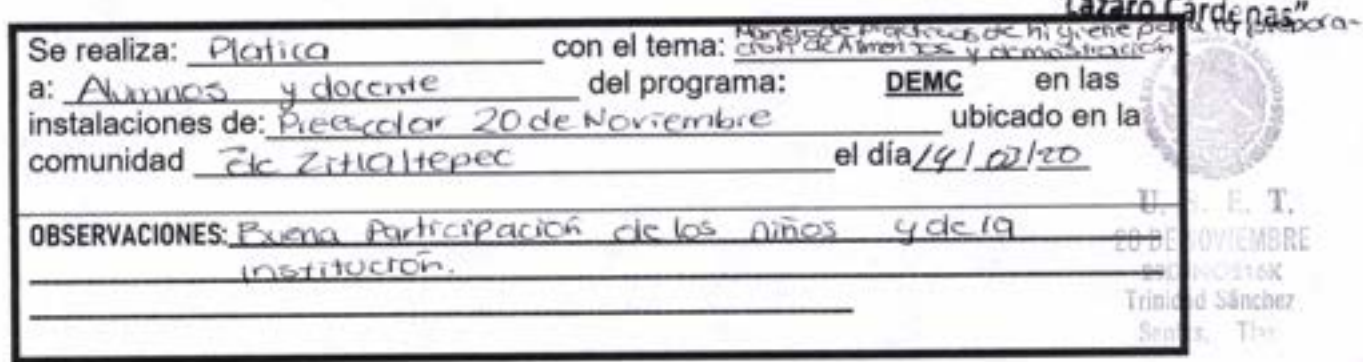 Lázaro Cárdenas"
Se realiza: Platica con el tema: Manejo de Practicas de higiene para la prepora-
ción de Alimentos y demostración
a: Alumnos y docente del programa: DEMC en las
instalaciones de: Preescolar 20 de Noviembre ubicado en la
comunidad de Zitlaltepec el día 14/02/20
OBSERVACIONES: Buena Participación de los niños y de la
institución.
U. S. E. T.
20 DE NOVIEMBRE
Trinidad Sánchez